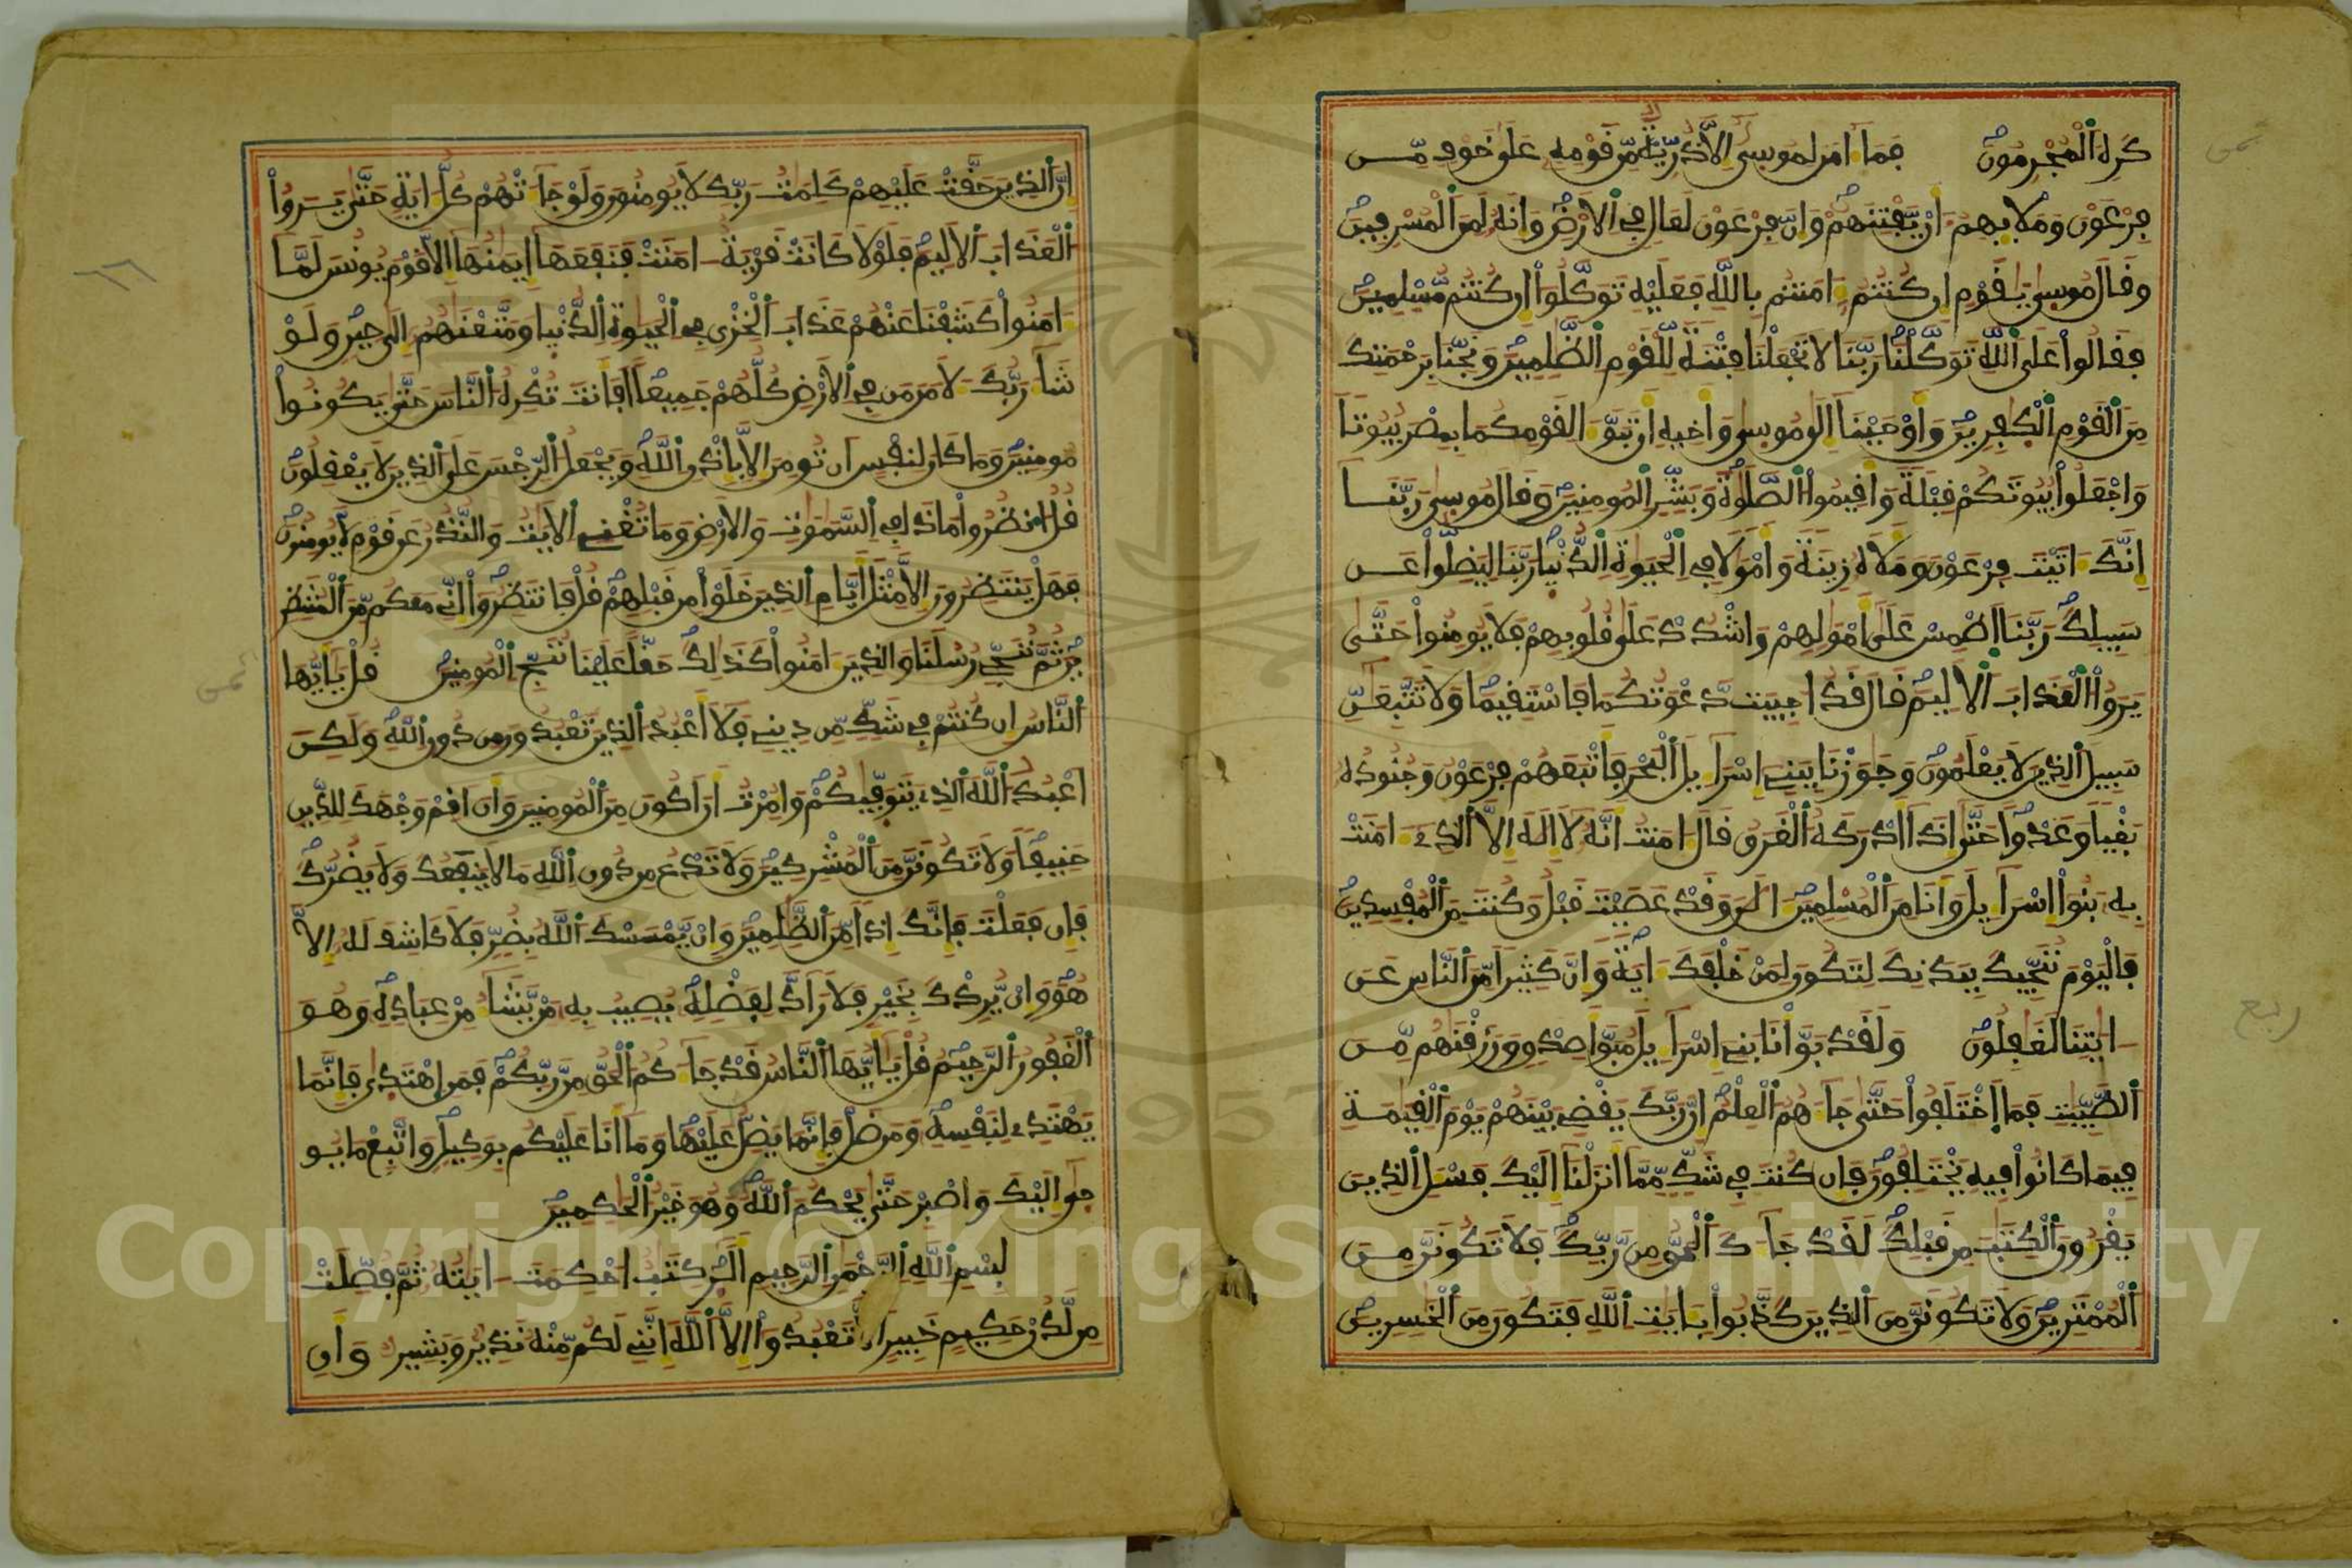 كَرِهَ اَلْمُجْرِمُونَ فَمَا ءامَنَ لِمُوسِىٰ إِلَّا ذُرِّيَّةٌ مِّن قَوْمِهِ عَلَىٰ خَوْفٍ مِّن
فِرْعَوْنَ وَمَلَإِيهِمُ أَنْ يَّفْتِنَهُمْ وَإِنَّ فِرْعَوْنَ لَعَالٍ فِي اِلَارْضِ وَإِنَّهُ لَمِنَ اَلْمُسْرِفِينَ
وَقَالَ مُوسِىٰ يَٰقَوْمِ إِن كُنتُمُ ءامَنتُم بِاللَّهِ فَعَلَيْهِ تَوَكَّلُوا إِن كُنتُم مُّسْلِمِينَ
فَقَالُوا عَلَى اَللَّهِ تَوَكَّلْنَا رَبَّنَا لَا تَجْعَلْنَا فِتْنَةً لِّلْقَوْمِ اِلظَّٰلِمِينَ وَنَجِّنَا بِرَحْمَتِكَ
مِنَ اَلْقَوْمِ اِلْكَٰفِرِينَ وَأَوْحَيْنَا إِلَىٰ مُوسِىٰ وَأَخِيهِ أَن تَبَوَّءَا لِقَوْمِكُمَا بِمِصْرَ بُيُوتًا
وَاجْعَلُوا بُيُوتَكُمْ قِبْلَةً وَأَقِيمُوا اُلصَّلَوٰةَ وَبَشِّرِ اِلْمُومِنِينَ وَقَالَ مُوسِىٰ رَبَّنَا
إِنَّكَ ءاتَيْتَ فِرْعَوْنَ وَمَلَأَهُ زِينَةً وَأَمْوَٰلًا فِي اِلْحَيَوٰةِ اِلدُّنْيَا رَبَّنَا لِيَضِلُّوا عَن
سَبِيلِكَ رَبَّنَا اَطْمِسْ عَلَىٰ أَمْوَٰلِهِمْ وَاشْدُدْ عَلَىٰ قُلُوبِهِمْ فَلَا يُومِنُوا حَتَّىٰ
يَرَوُا اُلْعَذَابَ اَلَالِيمَ قَالَ قَد اجِيبَت دَّعْوَتُكُمَا فَاسْتَقِيمَا وَلَا تَتَّبِعَٰنِّ
سَبِيلَ اَلذِينَ لَا يَعْلَمُونَ وَجَٰوَزْنَا بِبَنِي إِسْرَآءِيلَ اَلْبَحْرَ فَأَتْبَعَهُمْ فِرْعَوْنُ وَجُنُودُهُ
بَغْيًا وَعَدْوًا حَتَّىٰ إِذَا أَدْرَكَهُ اُلْغَرَقُ قَالَ ءامَنتُ أَنَّهُ لَا إِلَٰهَ إِلَّا اَلذِي ءامَنَتْ
بِهِ بَنُوا إِسْرَآءِيلَ وَأَنَا مِنَ اَلْمُسْلِمِينَ ءالَٰنَ وَقَدْ عَصَيْتَ قَبْلُ وَكُنتَ مِنَ اَلْمُفْسِدِينَ
فَالْيَوْمَ نُنَجِّيكَ بِبَدَنِكَ لِتَكُونَ لِمَنْ خَلْفَكَ ءايَةً وَإِنَّ كَثِيرًا مِّنَ اَلنَّاسِ عَنَ
ءايَٰتِنَا لَغَٰفِلُونَ وَلَقَدْ بَوَّأْنَا بَنِي إِسْرَآءِيلَ مُبَوَّأَ صِدْقٍ وَرَزَقْنَٰهُم مِّنَ
اَلطَّيِّبَٰتِ فَمَا اَخْتَلَفُوا حَتَّىٰ جَآءَهُمُ اُلْعِلْمُ إِنَّ رَبَّكَ يَقْضِي بَيْنَهُمْ يَوْمَ اَلْقِيَٰمَةِ
فِيمَا كَانُوا فِيهِ يَخْتَلِفُونَ فَإِن كُنتَ فِي شَكٍّ مِّمَّا أَنزَلْنَا إِلَيْكَ فَسْـَٔلِ اِلذِينَ
يَقْرَءُونَ اَلْكِتَٰبَ مِن قَبْلِكَ لَقَدْ جَآءَكَ اَلْحَقُّ مِن رَّبِّكَ فَلَا تَكُونَنَّ مِنَ
اَلْمُمْتَرِينَ وَلَا تَكُونَنَّ مِنَ اَلذِينَ كَذَّبُوا بِـَٔايَٰتِ اِللَّهِ فَتَكُونَ مِنَ اَلْخَٰسِرِينَ
ثمن
ربع
إِنَّ اَلذِينَ حَقَّتْ عَلَيْهِمْ كَلِمَٰتُ رَبِّكَ لَا يُومِنُونَ وَلَوْ جَآءَتْهُمْ كُلُّ ءايَةٍ حَتَّىٰ يَرَوُا
اُلْعَذَابَ اَلَالِيمَ فَلَوْلَا كَانَتْ قَرْيَةٌ ءامَنَتْ فَنَفَعَهَا إِيمَٰنُهَا إِلَّا قَوْمَ يُونُسَ لَمَّا
ءامَنُوا كَشَفْنَا عَنْهُمْ عَذَابَ اَلْخِزْيِ فِي اِلْحَيَوٰةِ اِلدُّنْيَا وَمَتَّعْنَٰهُمُ إِلَىٰ حِينٍ وَلَوْ
شَآءَ رَبُّكَ لَأمَنَ مَن فِي اِلَارْضِ كُلُّهُمْ جَمِيعًا اَفَأَنتَ تُكْرِهُ اُلنَّاسَ حَتَّىٰ يَكُونُوا
مُومِنِينَ وَمَا كَانَ لِنَفْسٍ اَن تُومِنَ إِلَّا بِإِذْنِ اِللَّهِ وَيَجْعَلُ اُلرِّجْسَ عَلَى اَلذِينَ لَا يَعْقِلُونَ
قُلُ انظُرُوا مَاذَا فِي اِلسَّمَٰوَٰتِ وَالَارْضِ وَمَا تُغْنِي اِلَايَٰتُ وَالنُّذُرُ عَن قَوْمٍ لَّا يُومِنُونَ
فَهَلْ يَنتَظِرُونَ إِلَّا مِثْلَ أَيَّامِ اِلذِينَ خَلَوْا مِن قَبْلِهِمْ قُلْ فَانتَظِرُوا إِنِّي مَعَكُم مِّنَ اَلْمُنتَظِ
رِينَ ثُمَّ نُنَجِّي رُسُلَنَا وَالذِينَ ءامَنُوا كَذَٰلِكَ حَقًّا عَلَيْنَا نُنَجِّ اِلْمُومِنِينَ قُلْ يَٰأَيُّهَا
اَلنَّاسُ إِن كُنتُمْ فِي شَكٍّ مِّن دِينِي فَلَا أَعْبُدُ اُلذِينَ تَعْبُدُونَ مِن دُونِ اِللَّهِ وَلَٰكِنَ
اَعْبُدُ اُللَّهَ اَلذِي يَتَوَفَّيٰكُمْ وَأُمِرْتُ أَنَ اَكُونَ مِنَ اَلْمُومِنِينَ وَأَنَ اَقِمْ وَجْهَكَ لِلدِّينِ
حَنِيفًا وَلَا تَكُونَنَّ مِنَ اَلْمُشْرِكِينَ وَلَا تَدْعُ مِن دُونِ اِللَّهِ مَا لَا يَنفَعُكَ وَلَا يَضُرُّكَ
فَإِن فَعَلْتَ فَإِنَّكَ إِذًا مِّنَ اَلظَّٰلِمِينَ وَإِنْ يَّمْسَسْكَ اَللَّهُ بِضُرٍّ فَلَا كَاشِفَ لَهُ إِلَّا
هُوَ وَإِنْ يُّرِدْكَ بِخَيْرٍ فَلَا رَآدَّ لِفَضْلِهِ يُصِيبُ بِهِ مَنْ يَّشَآءُ مِنْ عِبَادِهِ وَهُوَ
اَلْغَفُورُ اُلرَّحِيمُ قُلْ يَٰأَيُّهَا اَلنَّاسُ قَدْ جَآءَكُمُ اُلْحَقُّ مِن رَّبِّكُمْ فَمَنِ اِهْتَدَىٰ فَإِنَّمَا
يَهْتَدِي لِنَفْسِهِ وَمَن ضَلَّ فَإِنَّمَا يَضِلُّ عَلَيْهَا وَمَا أَنَا عَلَيْكُم بِوَكِيلٍ وَاتَّبِعْ مَا يُو
حَىٰ إِلَيْكَ وَاصْبِرْ حَتَّىٰ يَحْكُمَ اَللَّهُ وَهُوَ خَيْرُ اُلْحَٰكِمِينَ
بِسْمِ اِللَّهِ اِلرَّحْمَٰنِ اِلرَّحِيمِ أَلَٓرَ كِتَٰبٌ احْكِمَتَ ءايَٰتُهُ ثُمَّ فُصِّلَتْ
مِن لَّدُنْ حَكِيمٍ خَبِيرٍ اَلَّا تَعْبُدُوا إِلَّا اَللَّهَ إِنَّنِي لَكُم مِّنْهُ نَذِيرٌ وَبَشِيرٌ وَأَنِ
ثمن
Copyright © King Saud University
1957